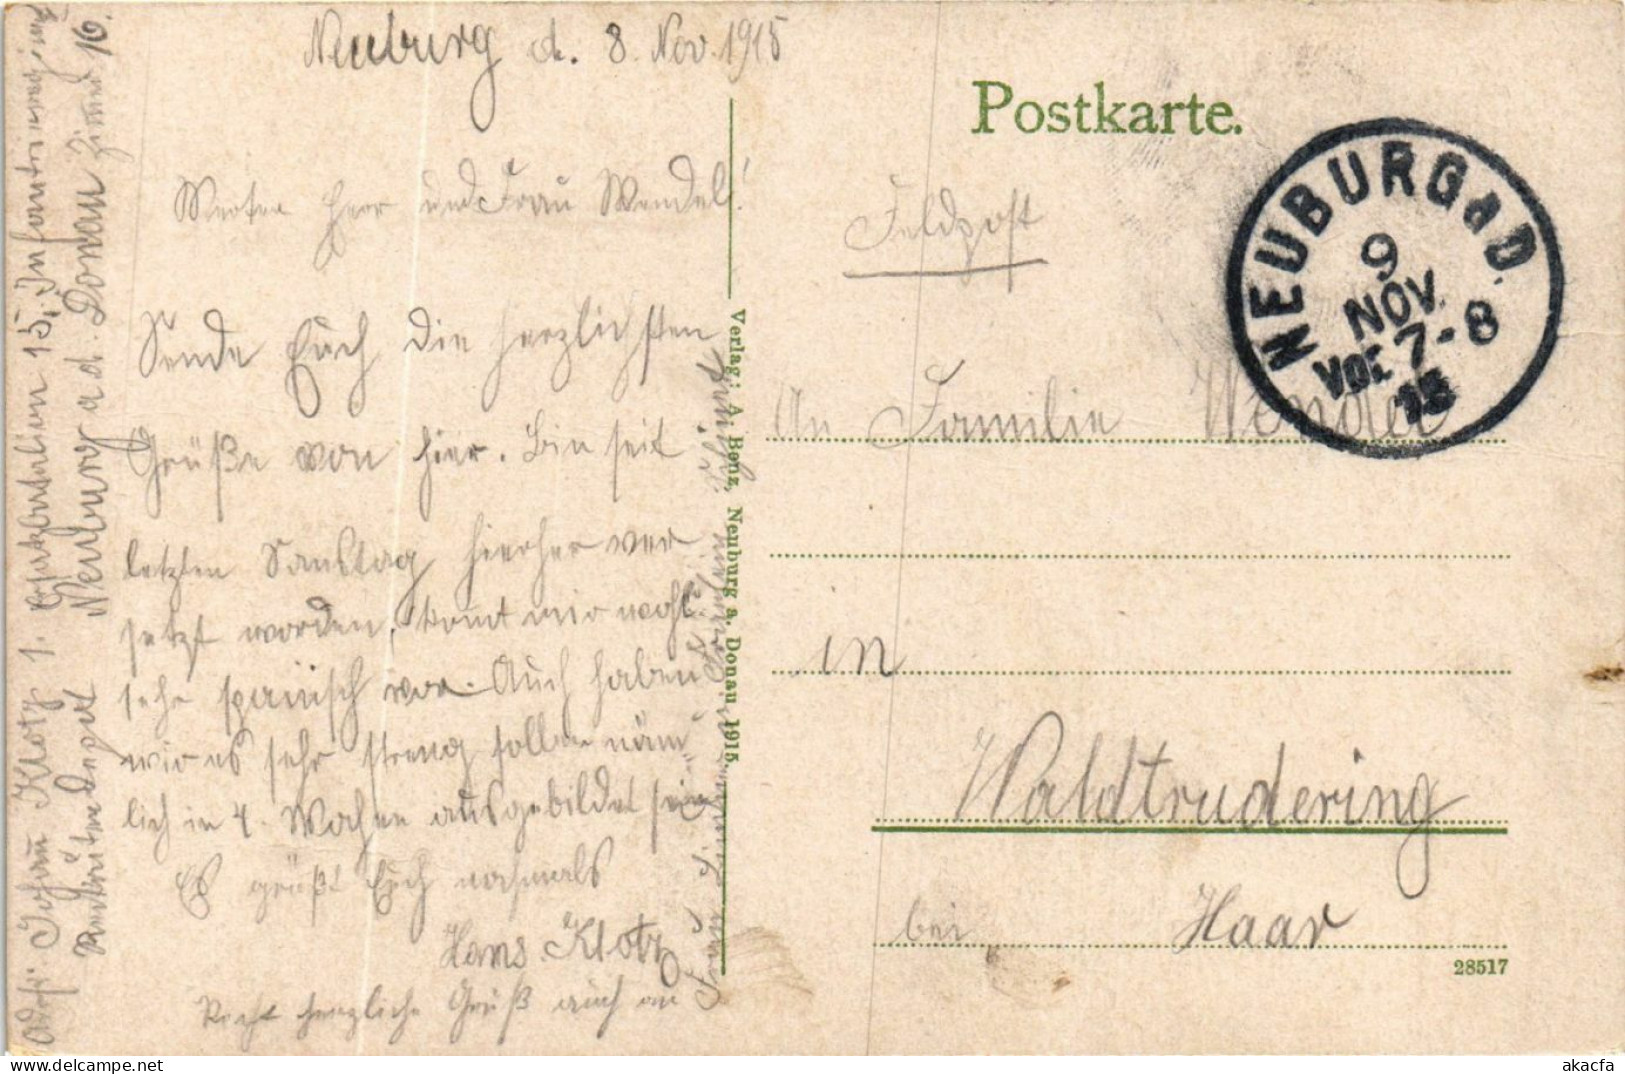 Neuburg d. 8. Nov. 1915
Werten Herr und Frau Wendel!
Sende Euch die herzlichsten
Grüße von hier. Bin seit
letzten Samstag hierher ver
setzt worden, komt mir wohl
sehr spanisch vor. Auch haben
wir es sehr streng sollen näm
lich in 4. Wochen ausgebildet sein
Es grüßt Euch nochmals
Hans Klotz
Recht herzliche Grüß auch an
Johann Klotz 1. Ersatzbatallion 15. Infanterie
Rekrutendepot Neuburg a. d. Donau Zimmer 16.
Verlag: A. Benz, Neuburg a. Donau, 1915.
Postkarte.
Feldpost
NEUBURG a D.
9
NOV.
7-8
15
An Familie Wendel
in
Waldtrudering
bei Haar
28517
akacfa